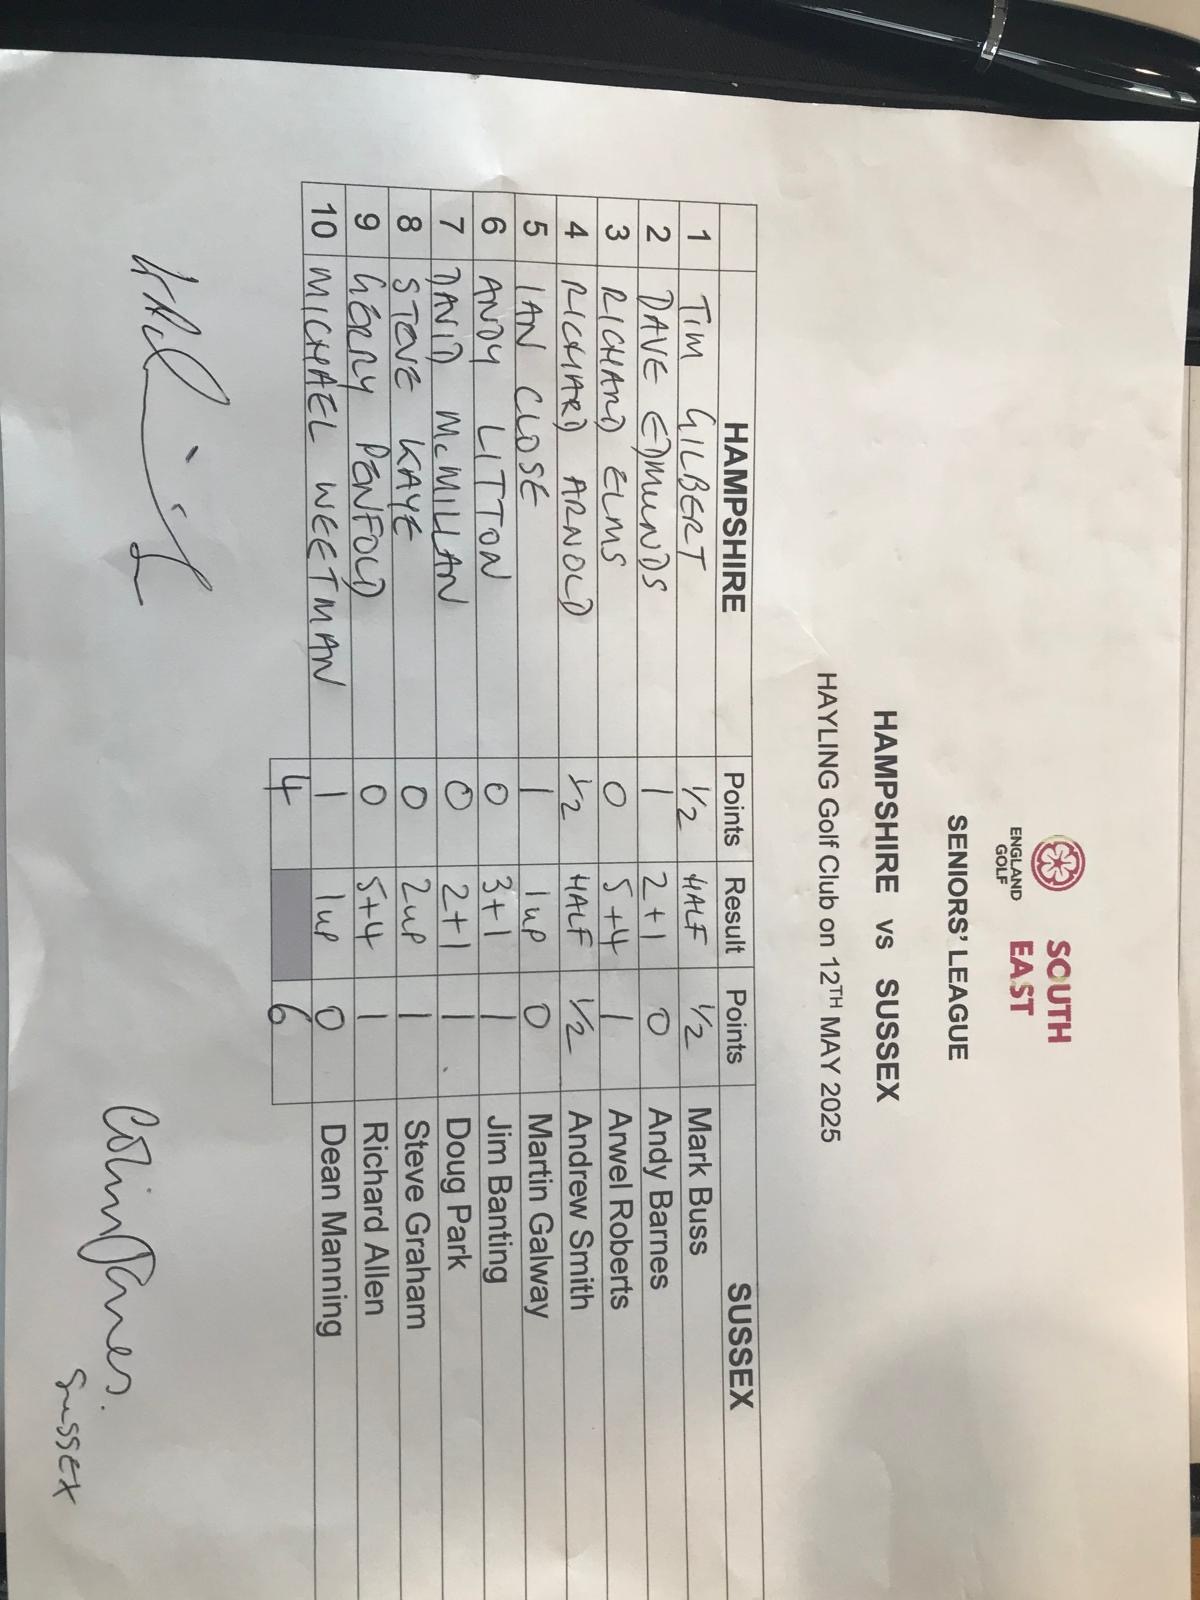 ENGLAND GOLF SOUTH EAST
SENIORS' LEAGUE
HAMPSHIRE vs SUSSEX
HAYLING Golf Club on 12TH MAY 2025
HAMPSHIRE Points Result Points SUSSEX
1 TIM GILBERT 1/2 HALF 1/2 Mark Buss
2 DAVE EDMUNDS 1 2+1 0 Andy Barnes
3 RICHARD ELMS 0 5+4 1 Arwel Roberts
4 RICHARD ARNOLD 1/2 HALF 1/2 Andrew Smith
5 IAN CLOSE 1 1up 0 Martin Galway
6 ANDY LITTON 0 3+1 1 Jim Banting
7 DAVID McMILLAN 0 2+1 1 Doug Park
8 STEVE KAYE 0 2up 1 Steve Graham
9 GERRY PENFOLD 0 5+4 1 Richard Allen
10 MICHAEL WEETMAN 1 1up 0 Dean Manning
4 6
Colin James.
SUSSEX